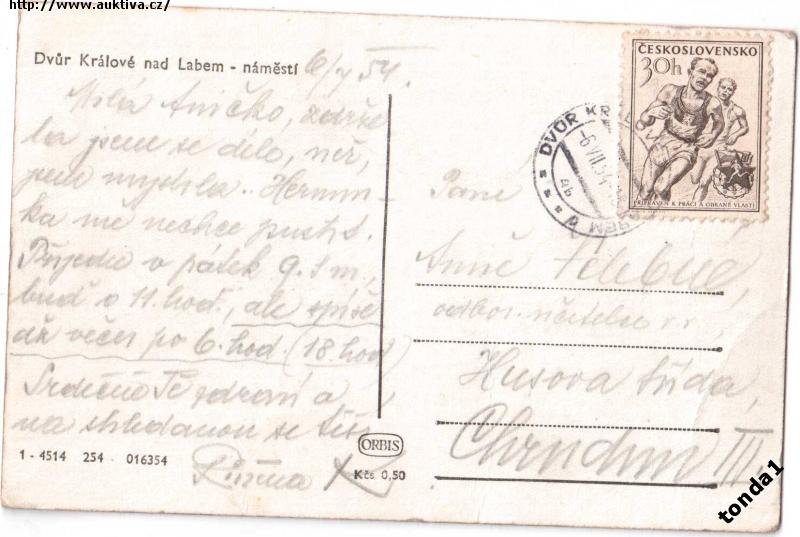 (zdroj: www.auktiva.cz)
Dvůr Králové nad Labem - náměstí 6/7 54.
Milá Aničko, zdrže
la jsem se déle, než
jsem myslela. Hermin
ka mě nechce pustit.
Přijedu v pátek 9. t m,
buď o 11. hod., ale spíše
až večer po 6. hod. (18. hod)
Srdečně Tě zdraví a
na shledanou se těší
Růžena
1 - 4514 254 - 016354
ORBIS
Kčs 0,50
ČESKOSLOVENSKO
30h
PŘIPRAVEN K PRÁCI A OBRANĚ VLASTI
DVŮR KRÁLOVÉ N. LABEM
-6.VII.54
4b
Paní
Anně
odbor. učitelce v. v.
Husova třída,
Chrudim III.
tonda1